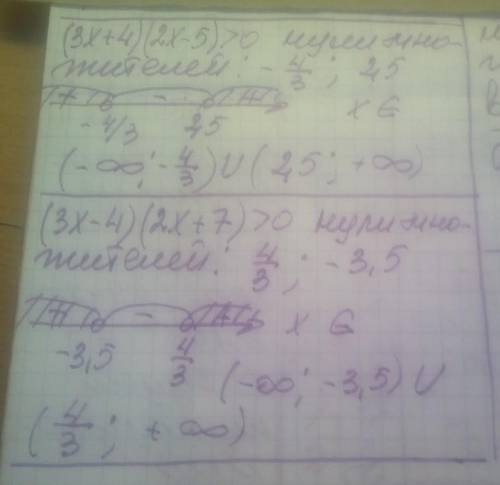 (3x+4)(2x-5)>0 нули мно-
жителей: -4/3; 2,5
+ - +
-4/3 2,5 x ∈
(-∞; -4/3) U (2,5; +∞)
(3x-4)(2x+7)>0 нули мно-
жителей: 4/3; -3,5
+ - + x ∈
-3,5 4/3 (-∞; -3,5) U
(4/3; +∞)